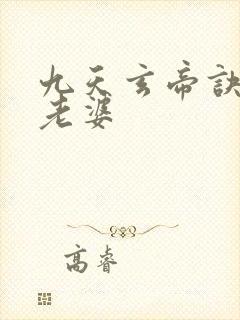 九天玄帝訣
老婆
高睿